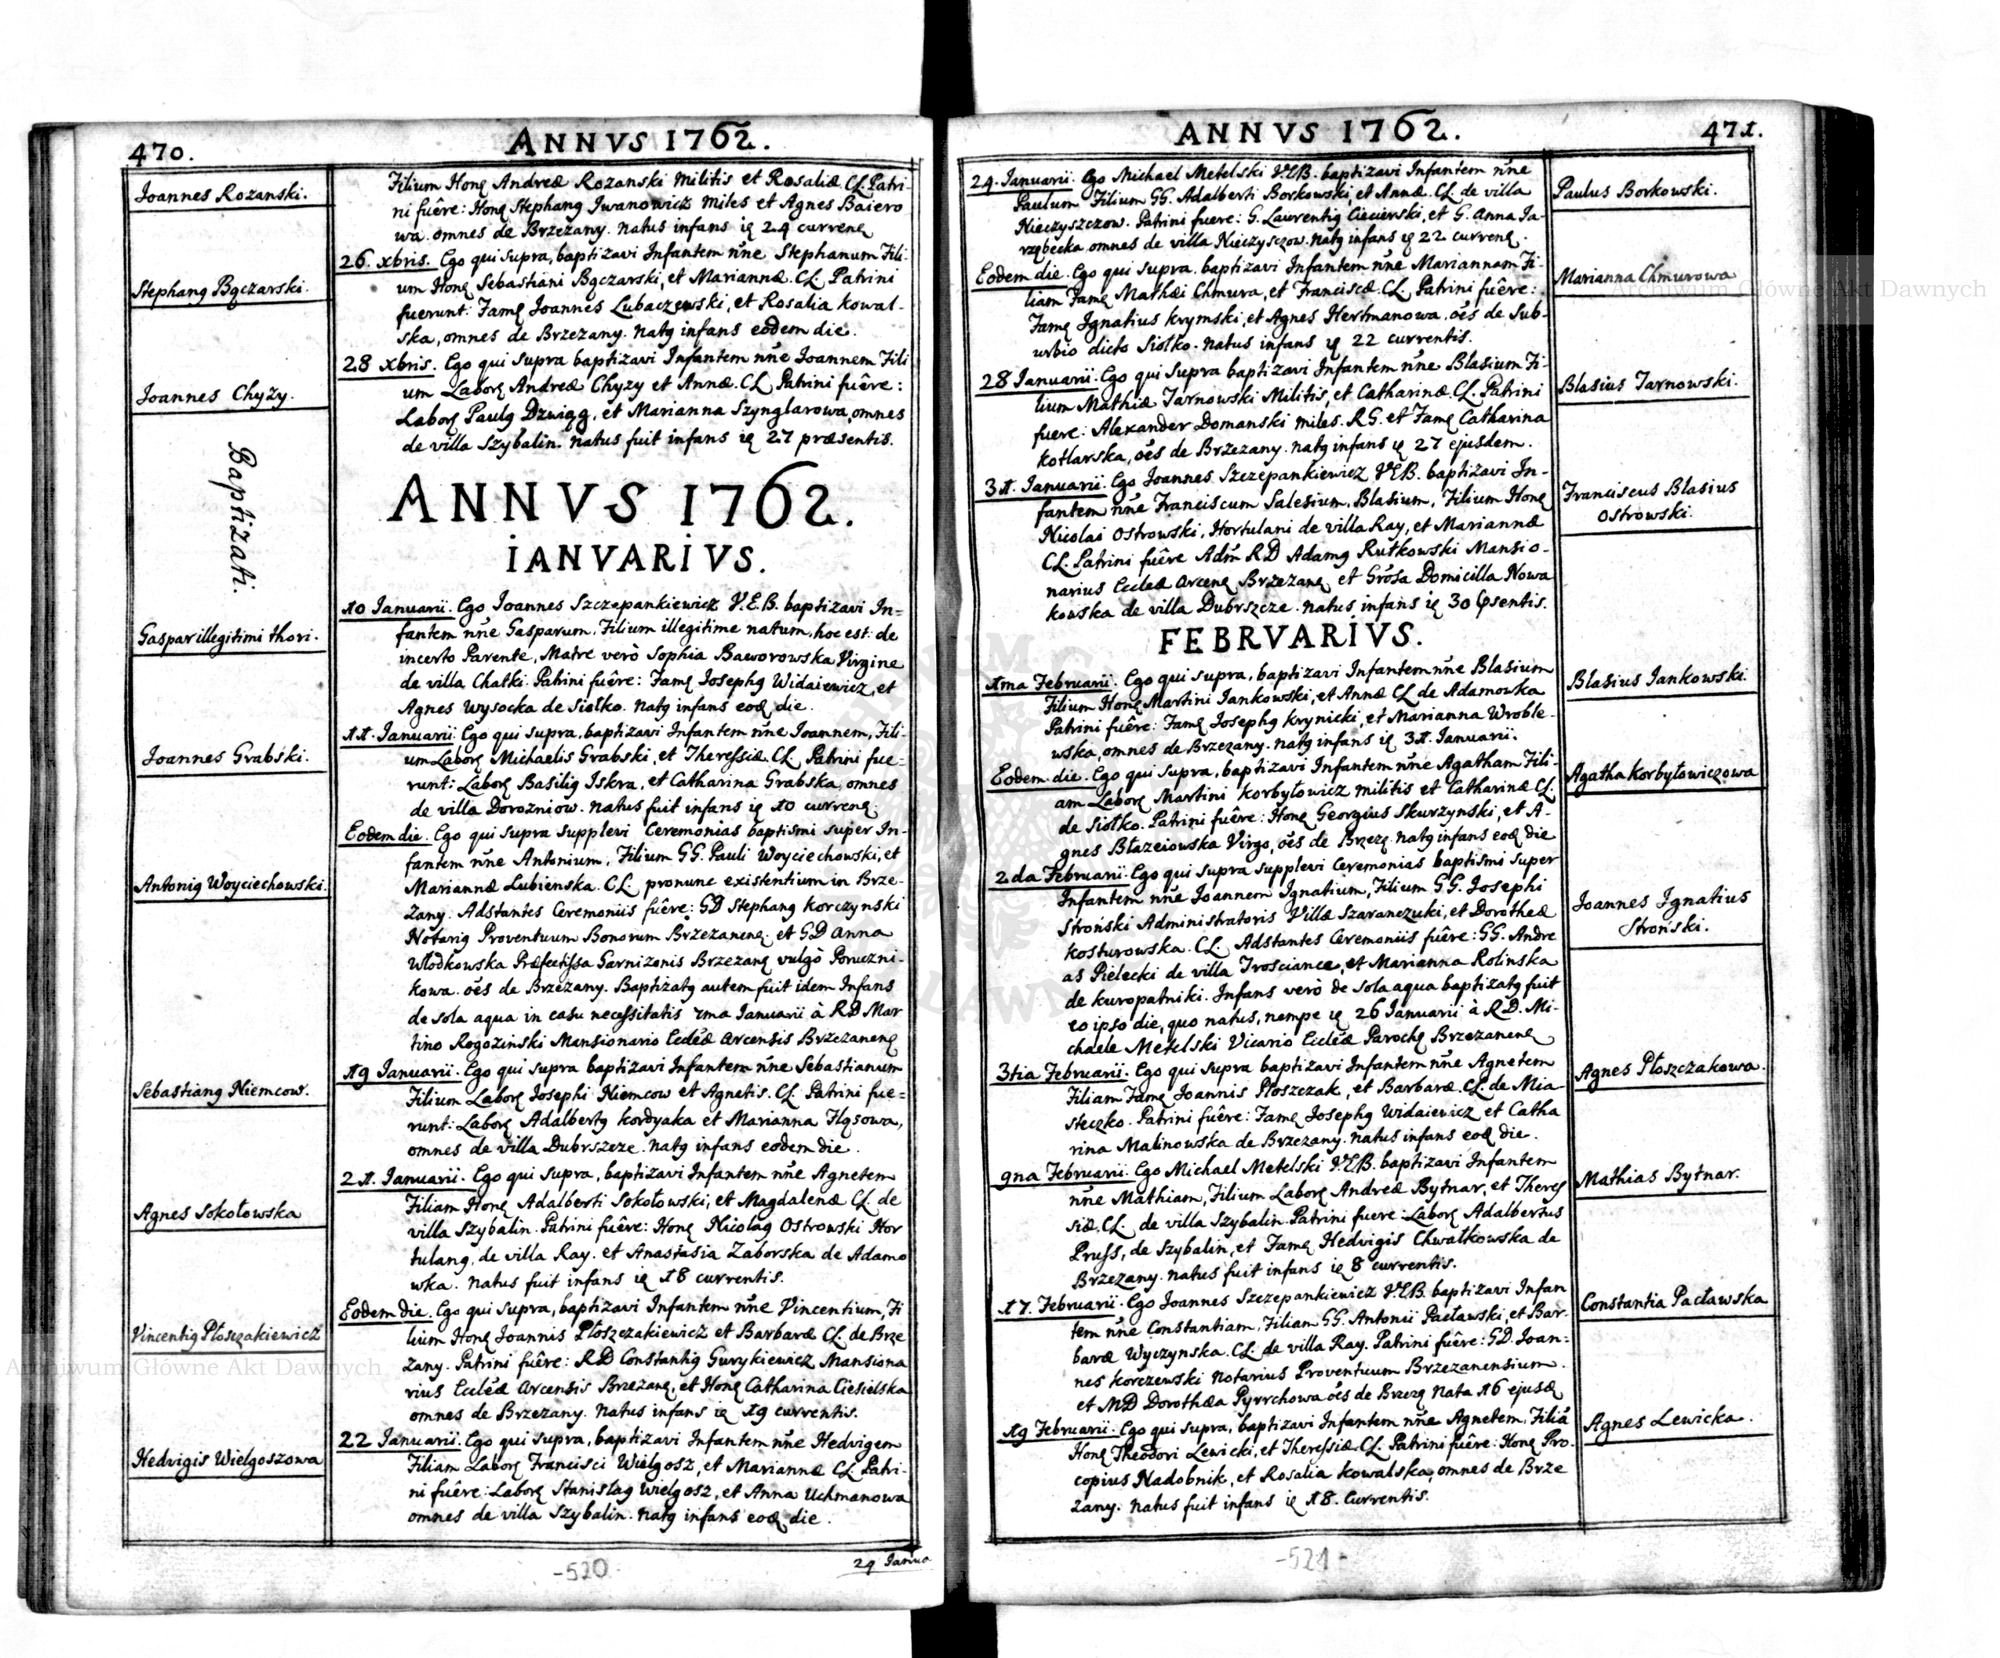 470.
ANNVS 1762.
Joannes Rozanski.
Stephang Bączarski.
Joannes Chyży.
Baptizati.
Gaspar illegitimi thori.
Joannes Grabski.
Antonig Woyciechowski.
Sebastiang Niemcow.
Agnes Sokołowska
Vincentig Płoszczakiewicz
Hedvigis Wielgoszowa
Filium Honę Andreæ Rozanski Militis et Rosaliæ CL. Patri-
ni fuêre: Honę Stephang Jwanowicz Miles et Agnes Baiero
wa. omnes de Brzezany. Natus infans ię 24 currenę
26. xbris. Ego qui supra, baptizavi Infantem nn̄e Stephanum Fili-
um Honę Sebastiani Bączarski, et Mariannæ. CL. Patrini
fuerunt: Famę Joannes Lubaczewski, et Rosalia Kowal-
ska, omnes de Brzezany. Natg infans eodem die.
28 xbris. Ego qui supra baptizavi Infantem nn̄e Joannem Fili
um Laborę Andreæ Chyzy et Annæ. CL Patrini fuêre:
Laborę Paulg Dzwigg, et Marianna Szynglarowa, omnes
de villa Szybalin. Natus fuit infans ię 27 præsentis.
ANNVS 1762.
IANVARIVS.
10 Januarii. Ego Joannes Szczepankiewicz V.E.B. baptizavi In-
fantem nn̄e Gasparum, Filium illegitime natum, hoc est: de
incerto Parente, Matre verò Sophia Baworowska Virgine
de villa Chatki. Patrini fuêre: Famę Josephg Widaiewicz, et
Agnes Wysocka de Siołko. Natg infans eoꝺ die.
11. Januarii. Ego qui supra, baptizavi Infantem nn̄e Joannem, Fili-
um Laborę Michaelis Grabski, et Theressiæ. CL. Patrini fue-
runt: Laborę Basilig Iskra, et Catharina Grabska, omnes
de villa Dorozniow. Natus fuit infans ię 10 currenę.
Eodem die. Ego qui supra supplevi Ceremonias baptismi super In-
fantem nn̄e Antonium, Filium GG. Pauli Woyciechowski, et
Mariannæ Lubienska. CL. pronunc existentium in Brze-
zany. Adstantes Ceremoniis fuêre: GD Stephang Korczynski
Notarig Proventuum Bonorum Brzezanenę. et GD Anna
Włodkowska Præfectissa Garnizonis Brzezanę vulgò Poruczni-
kowa. oēs de Brzezany. Baptizatg autem fuit idem Infans
de sola aqua in casu necessitatis 7ma Januarii à RD Mar
tino Rogoziński Mansionario Eccleæ Arcensis Brzezanenę
19 Januarii. Ego qui supra baptizavi Infantem nn̄e Sebastianum
Filium Laborę Josephi Niemcow et Agnetis. CL. Patrini fue-
runt: Laborę Adalbertg Kordyaka et Marianna Hąsowa,
omnes de villa Dubrszcze. Natg infans eodem die.
21. Januarii. Ego qui supra, baptizavi Infantem nn̄e Agnetem
Filiam Honę Adalberti Sokołowski, et Magdalenæ CL de
villa Szybalin. Patrini fuêre: Honę Nicolag Ostrowski Hor
tulang, de villa Ray. et Anastasia Zaborska de Adamo
wka. Natus fuit infans ię 18 currentis.
Eodem die. Ego qui supra, baptizavi Infantem nn̄e Vincentium, Fi
lium Honę Joannis Płoszczakiewicz et Barbaræ CL. de Brze
zany. Patrini fuêre: RD Constantig Gurykiewicz Mansiona
rius Eccleæ Arcensis Brzezanę, et Honę Catharina Ciesielska
omnes de Brzezany. Natus infans ię 19 currentis.
22 Januarii. Ego qui supra, baptizavi Infantem nn̄e Hedvigem
Filiam Laborę Francisci Wielgosz, et Mariannæ CL. Patri-
ni fuêre: Laborę Stanislag Wielgosz, et Anna Uchmanowa
omnes de villa Szybalin. Natg infans eoꝺ die.
24 Janua
-520
ANNVS 1762.
471.
24. Januarii. Ego Michael Metelski V.E.B. baptizavi Infantem nn̄e
Paulum Filium GG. Adalberti Borkowski, et Annæ. CL. de villa
Nieczyszczow. Patrini fuere: G. Laurentig Ciecierski, et G. Anna Ja-
rzębecka omnes de villa Nieczyszczow. Natg infans ię 22 currenę.
Eodem die. Ego qui supra. baptizavi Infantem nn̄e Mariannam Fi-
liam Famę Mathæi Chmura, et Franciscæ. CL. Patrini fuêre:
Famę Jgnatius Krymski, et Agnes Hertmanowa. oēs de Sub-
urbio dicto Siołko. Natus infans ię 22 currentis.
28 Januarii. Ego qui supra baptizavi Infantem nn̄e Blasium Fi-
lium Mathiæ Tarnowski Militis, et Catharinæ. CL. Patrini
fuere: Alexander Domanski Miles. RG. et Famę Catharina
Kotlarska, oēs de Brzezany. Natg infans ię 27 ejusdem.
31. Januarii. Ego Joannes Szczepankiewicz V.E.B. baptizavi In-
fantem nn̄e Franciscum Salesium, Blasium, Filium Honę
Nicolai Ostrowski, Hortulani de villa Ray, et Mariannæ
CL. Patrini fuêre Adm̄ RD Adamg Rutkowski Mansio-
narius Eccleæ Arcenę Brzezanę et Grōsa Domicilla Nowa
kowska de villa Dubrszcze. Natus infans ię 30 p̄sentis.
FEBRVARIVS.
1ma Februarii. Ego qui supra, baptizavi Infantem nn̄e Blasium
Filium Honę Martini Jankowski, et Annæ CL de Adamowka
Patrini fuêre: Famę Josephg Krynicki, et Marianna Wroble-
wska, omnes de Brzezany. Natg infans ię 31. Januarii.
Eodem die. Ego qui supra, baptizavi Infantem nn̄e Agatham Fili-
am Laborę Martini Korbyłowicz Militis et Catharinæ CL.
de Siołko. Patrini fuêre: Honę Georgius Skurzynski, et A-
gnes Błazeiowska Virgo, oēs de Brzezę. Natg infans eoꝺ die
2da Februarii. Ego qui supra supplevi Ceremonias baptismi super
Infantem nn̄e Joannem Ignatium, Filium GG. Josephi
Stroński Administratoris Villæ Szaranczuki, et Dorotheæ
Kosturowska. CL. Adstantes Ceremoniis fuêre: GG. Andre
as Pielecki de villa Trosciance, et Marianna Rolinska
de Kuropatniki. Infans verò de sola aqua baptizatg fuit
eo ipso die, quo natus, nempe ię 26 Januarii à R.D. Mi-
chaele Metelski Vicario Eccleæ Parochę Brzezanenę
3tia Februarii. Ego qui supra baptizavi Infantem nn̄e Agnetem
Filiam Famę Joannis Płoszczak, et Barbaræ. CL. de Mia-
steczko. Patrini fuêre: Famę Josephg Widaiewicz et Catha
rina Malinowska de Brzezany. Natus infans eoꝺ die.
9na Februarii. Ego Michael Metelski V.E.B. baptizavi Infantem
nn̄e Mathiam, Filium Laborę Andreæ Bytnar, et Theres
siæ. CL. de villa Szybalin. Patrini fuere: Laborę Adalbertus
Pruss, de Szybalin, et Famę Hedvigis Chwałkowska de
Brzezany. Natus fuit infans ię 8 currentis.
17. Februarii. Ego Joannes Szczepankiewicz V.E.B. baptizavi Infan
tem nn̄e Constantiam, Filiam GG. Antonii Pacławski, et Bar-
baræ Wyczynska. CL. de villa Ray. Patrini fuêre: GD. Joan-
nes Korczewski Notarius Proventuum Brzezanensium.
et MD Dorothæa Pyrrchowa oēs de Brzezę Nata 16 ejusꝺ
19 Februarii. Ego qui supra, baptizavi Infantem nn̄e Agnetem, Filiā
Honę Theodori Lewicki, et Theressiæ. CL. Patrini fuêre: Honę Pro-
copius Nadobnik, et Rosalia Kowalska, omnes de Brze
zany. Natus fuit infans ię 18. Currentis.
Paulus Borkowski.
Marianna Chmurowa
Blasius Tarnowski.
Franciscus Blasius
Ostrowski.
Blasius Jankowski.
Agatha Korbyłowiczowa
Joannes Jgnatius
Stroński.
Agnes Płoszczakowa.
Mathias Bytnar.
Constantia Pacławska
Agnes Lewicka.
-521-
Archiwum Główne Akt Dawnych
Archiwum Główne Akt Dawnych